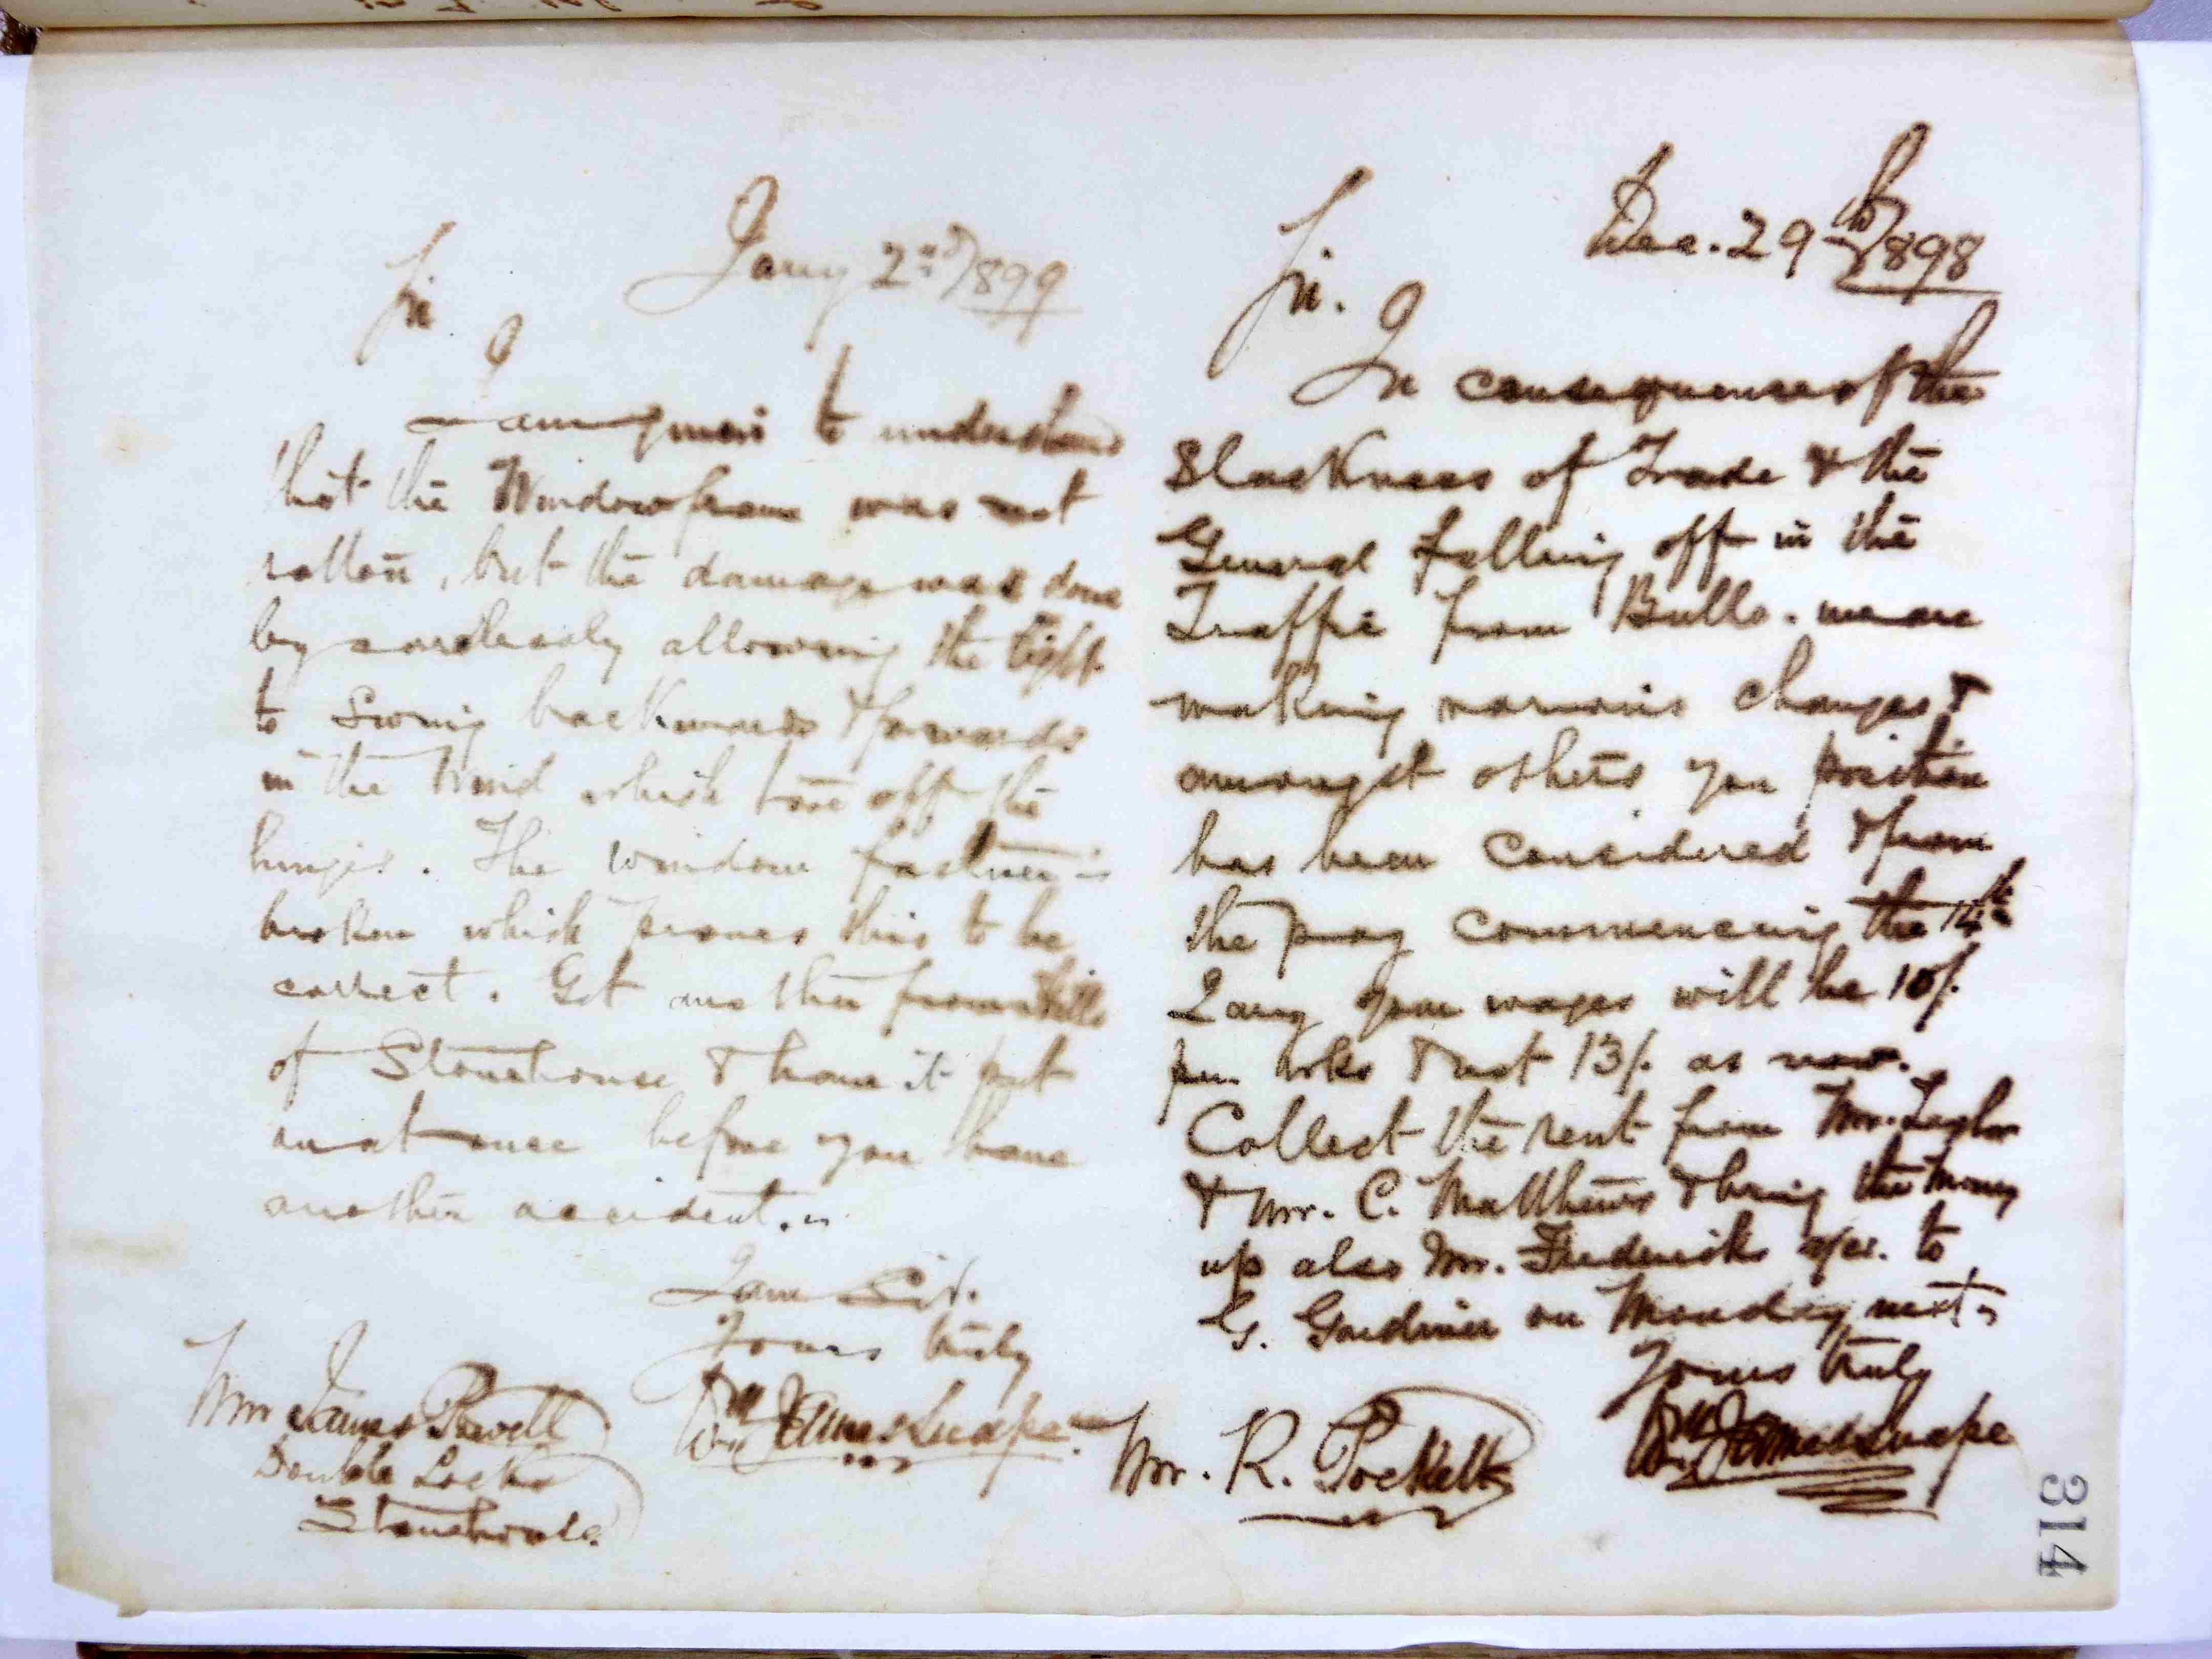 Jany 2nd/1899
Sir
I am given to understand
that the Windowframe was not
rotten, but the damage was done
by carelessly allowing the light
to Swing backwards & forwards
in the Wind which tore off the
hinges. The window fastner is
broken which proves this to be
correct. Get another from Hills
of Stonehouse & have it put
on at once before you have
another accident.
I am Sir.
Yours truly
Wm Jamessnape
Mr James Powell
Double Locks
Stonehouse.
Dec. 29th/1898
Sir.
In consequence of the
Slackness of Trade & the
General falling off in the
Traffic from Bullo. we are
making various changes &
amongst others your position
has been considered & from
the pay commencing the 14th
Jany your wages will be 10/.
per wke & not 13/. as now.
Collect the rent from Mr. Taylor
& Mr. C. Matthews & bring the money
up also Mr. Fredericks a/cs. to
G. Gardiner on Monday next.
Yours truly
Wm Jamessnape
Mr. R. Pockett
314